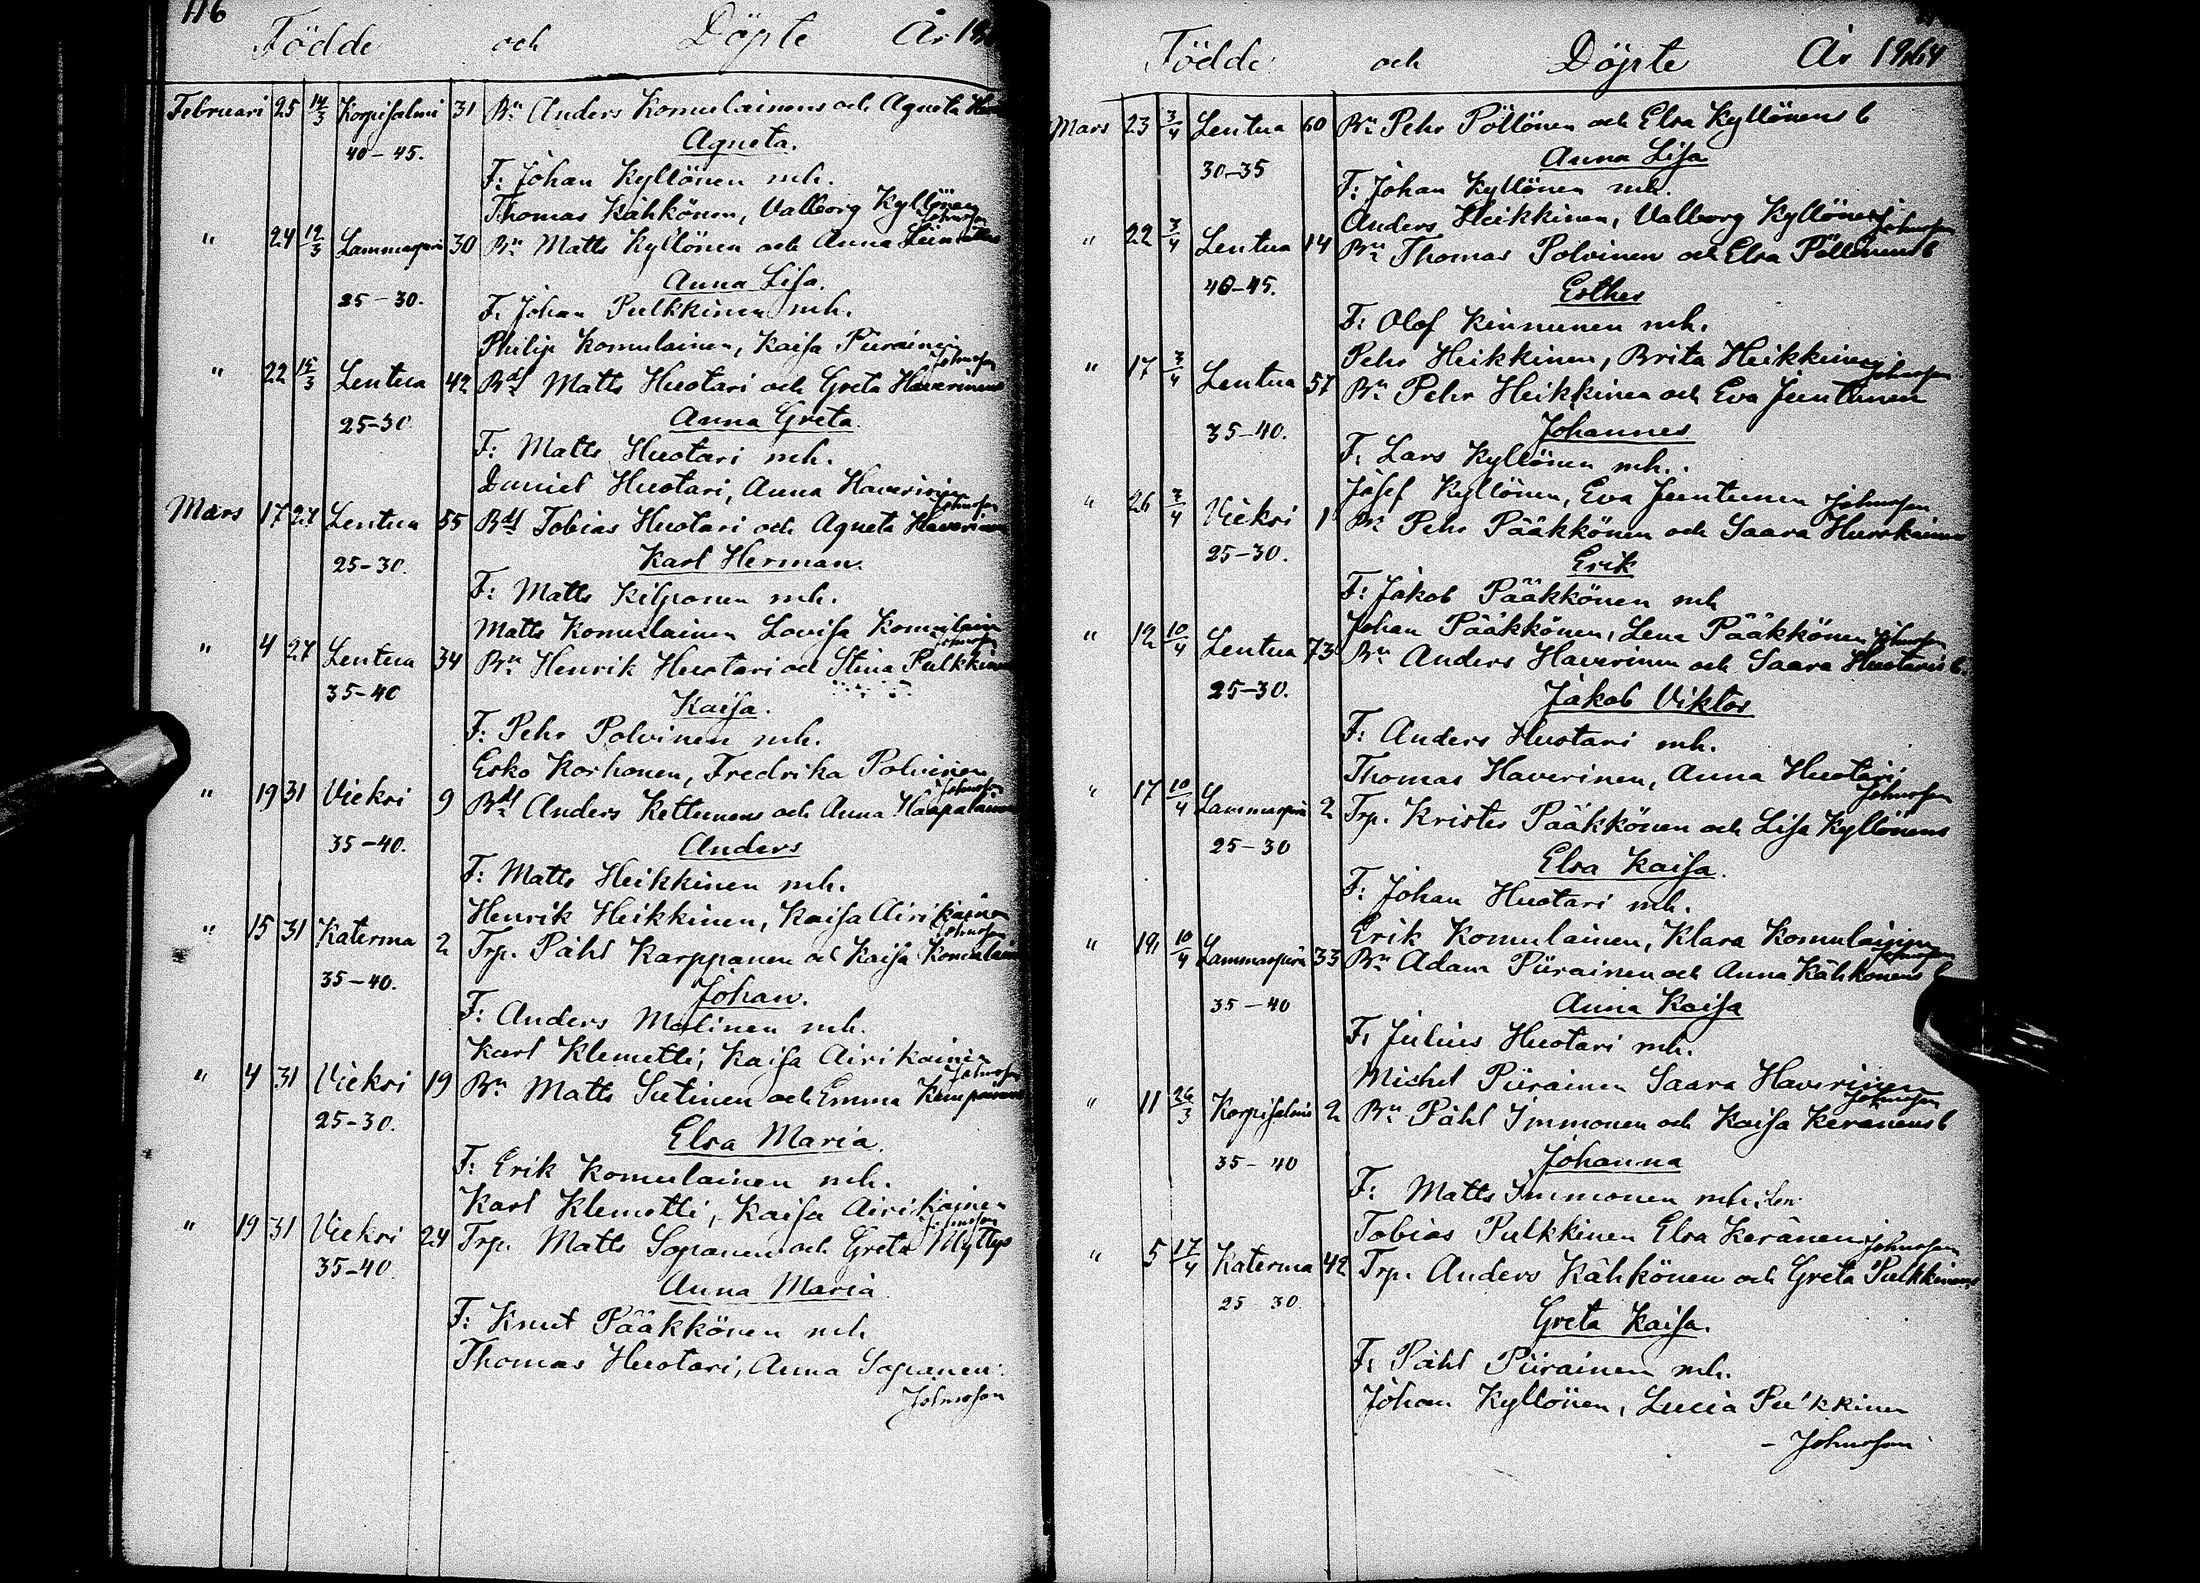 116
Födde och Döpte År
Februari 25 14/3 Korpisalmi 31 Bn Anders Komulainens och Agneta
40-45. Agneta.
F: Johan Kyllönen mh.
Thomas Kähkönen, Valborg Kyllönen
Johnsson
" 24 12/3 30 Bn Matts Kyllönen och Anna
Anna Lisa.
25-30.
F. Johan Pulkkinen mh.
Philip Komulainen, Kaisa Piirainen
Johnsson
" 22 15/3 Lentua 42 Matts Huotari och Greta Haverinens
25-30 Anna Greta.
F: Matts Huotari mh.
Daniel Huotari, Anna Haverinen
Johnsson
Mars 17 27 Lentua 55 Tobias Huotari och Agneta Haverinen
25-30. Karl Herman.
F: Matts Kilponen mh.
Matts Komulainen Lovisa
Johnsson
" 4 27 Lentua 34 Bn Henrik Huotari och Stina
35-40 Kaisa.
F: Pehr Polvinen mh.
Esko Korhonen, Fredrika Polvinen
Johnsson
" 19 31 Vieksi 9 Anders Kettunens och Anna
35-40. Anders
F: Matts Heikkinen mh.
Henrik Heikkinen, Kaisa Airikainen
Johnsson
" 15 31 Katerma 2 Trp. Påhl Karppanen och Kaisa
35-40. Johan.
F: Anders Malinen mh.
Karl Klemetti, Kaisa Airikainen
Johnsson
" 4 31 Vieksi 19 Bn Matts Sutinen och Emma
25-30. Elsa Maria.
F: Erik Komulainen mh.
Karl Klemetti, Kaisa Airikainen
Johnsson
" 19 31 Vieksi 24 Trp. Matts Sopanen och Greta
35-40. Anna Maria
F: Knut Pääkkönen mh.
Thomas Huotari, Anna Sopanen.
Johnsson
Födde och Döpte År
Mars 23 3/4 Lentua 60 Bn Pehr Pöllönen och Elsa Kyllönens b
Anna Lisa
30-35
F: Johan Kyllönen mh.
Anders Heikkinen, Valborg Kyllönen
Johnsson
" 22 3/4 Lentua 14 Bn Thomas Polvinen och Elsa Pöllönens b
40-45. Esther
F: Olof Kinnunen mh.
Pehr Heikkinen, Brita Heikkinen
Johnsson
" 17 3/4 Lentua 57 Bn Pehr Heikkinen och Eva Juntunen
35-40. Johannes
F. Lars Kyllönen mh.
Josef Kyllönen, Eva Juntunen Johnsson
" 26 3/4 Vieksi 1 Bn Pehr Pääkkönen och Saara
25-30. Erik
F: Jakob Pääkkönen mh
Johan Pääkkönen, Lena Pääkkönen Johnsson
" 12 10/4 Lentua 73 Bn Anders Haverinen och Saara Huotaris b.
25-30. Jakob Viktor
F: Anders Huotari mh.
Thomas Haverinen, Anna Huotari
Johnsson
" 17 10/4 2 Trp. Krister Pääkkönen och Lisa Kyllönens
25-30 Elsa Kaisa.
F: Johan Huotari mh.
Erik Komulainen, Klara Komulainen
Johnsson
" 19 10/4 33 Bn Adam Piirainen och Anna Kähkönens b
35-40 Anna Kaisa
F. Julius Huotari mh.
Michel Piirainen Saara Haverinen
Johnsson
" 11 26/3 Korpisalmi 2 Bn Påhl Immonen och Kaisa Keränens b
35-40 Johanna
F: Matts Immonen mh.
Tobias Pulkkinen Elsa Keränen Johnsson
" 5 17/4 Katerma 42 Trp. Anders Kähkönen och Greta Pulkkinens
25 30. Greta Kaisa.
F. Påhl Piirainen mh.
Johan Kyllönen, Lucia Pulkkinen
- Johnsson